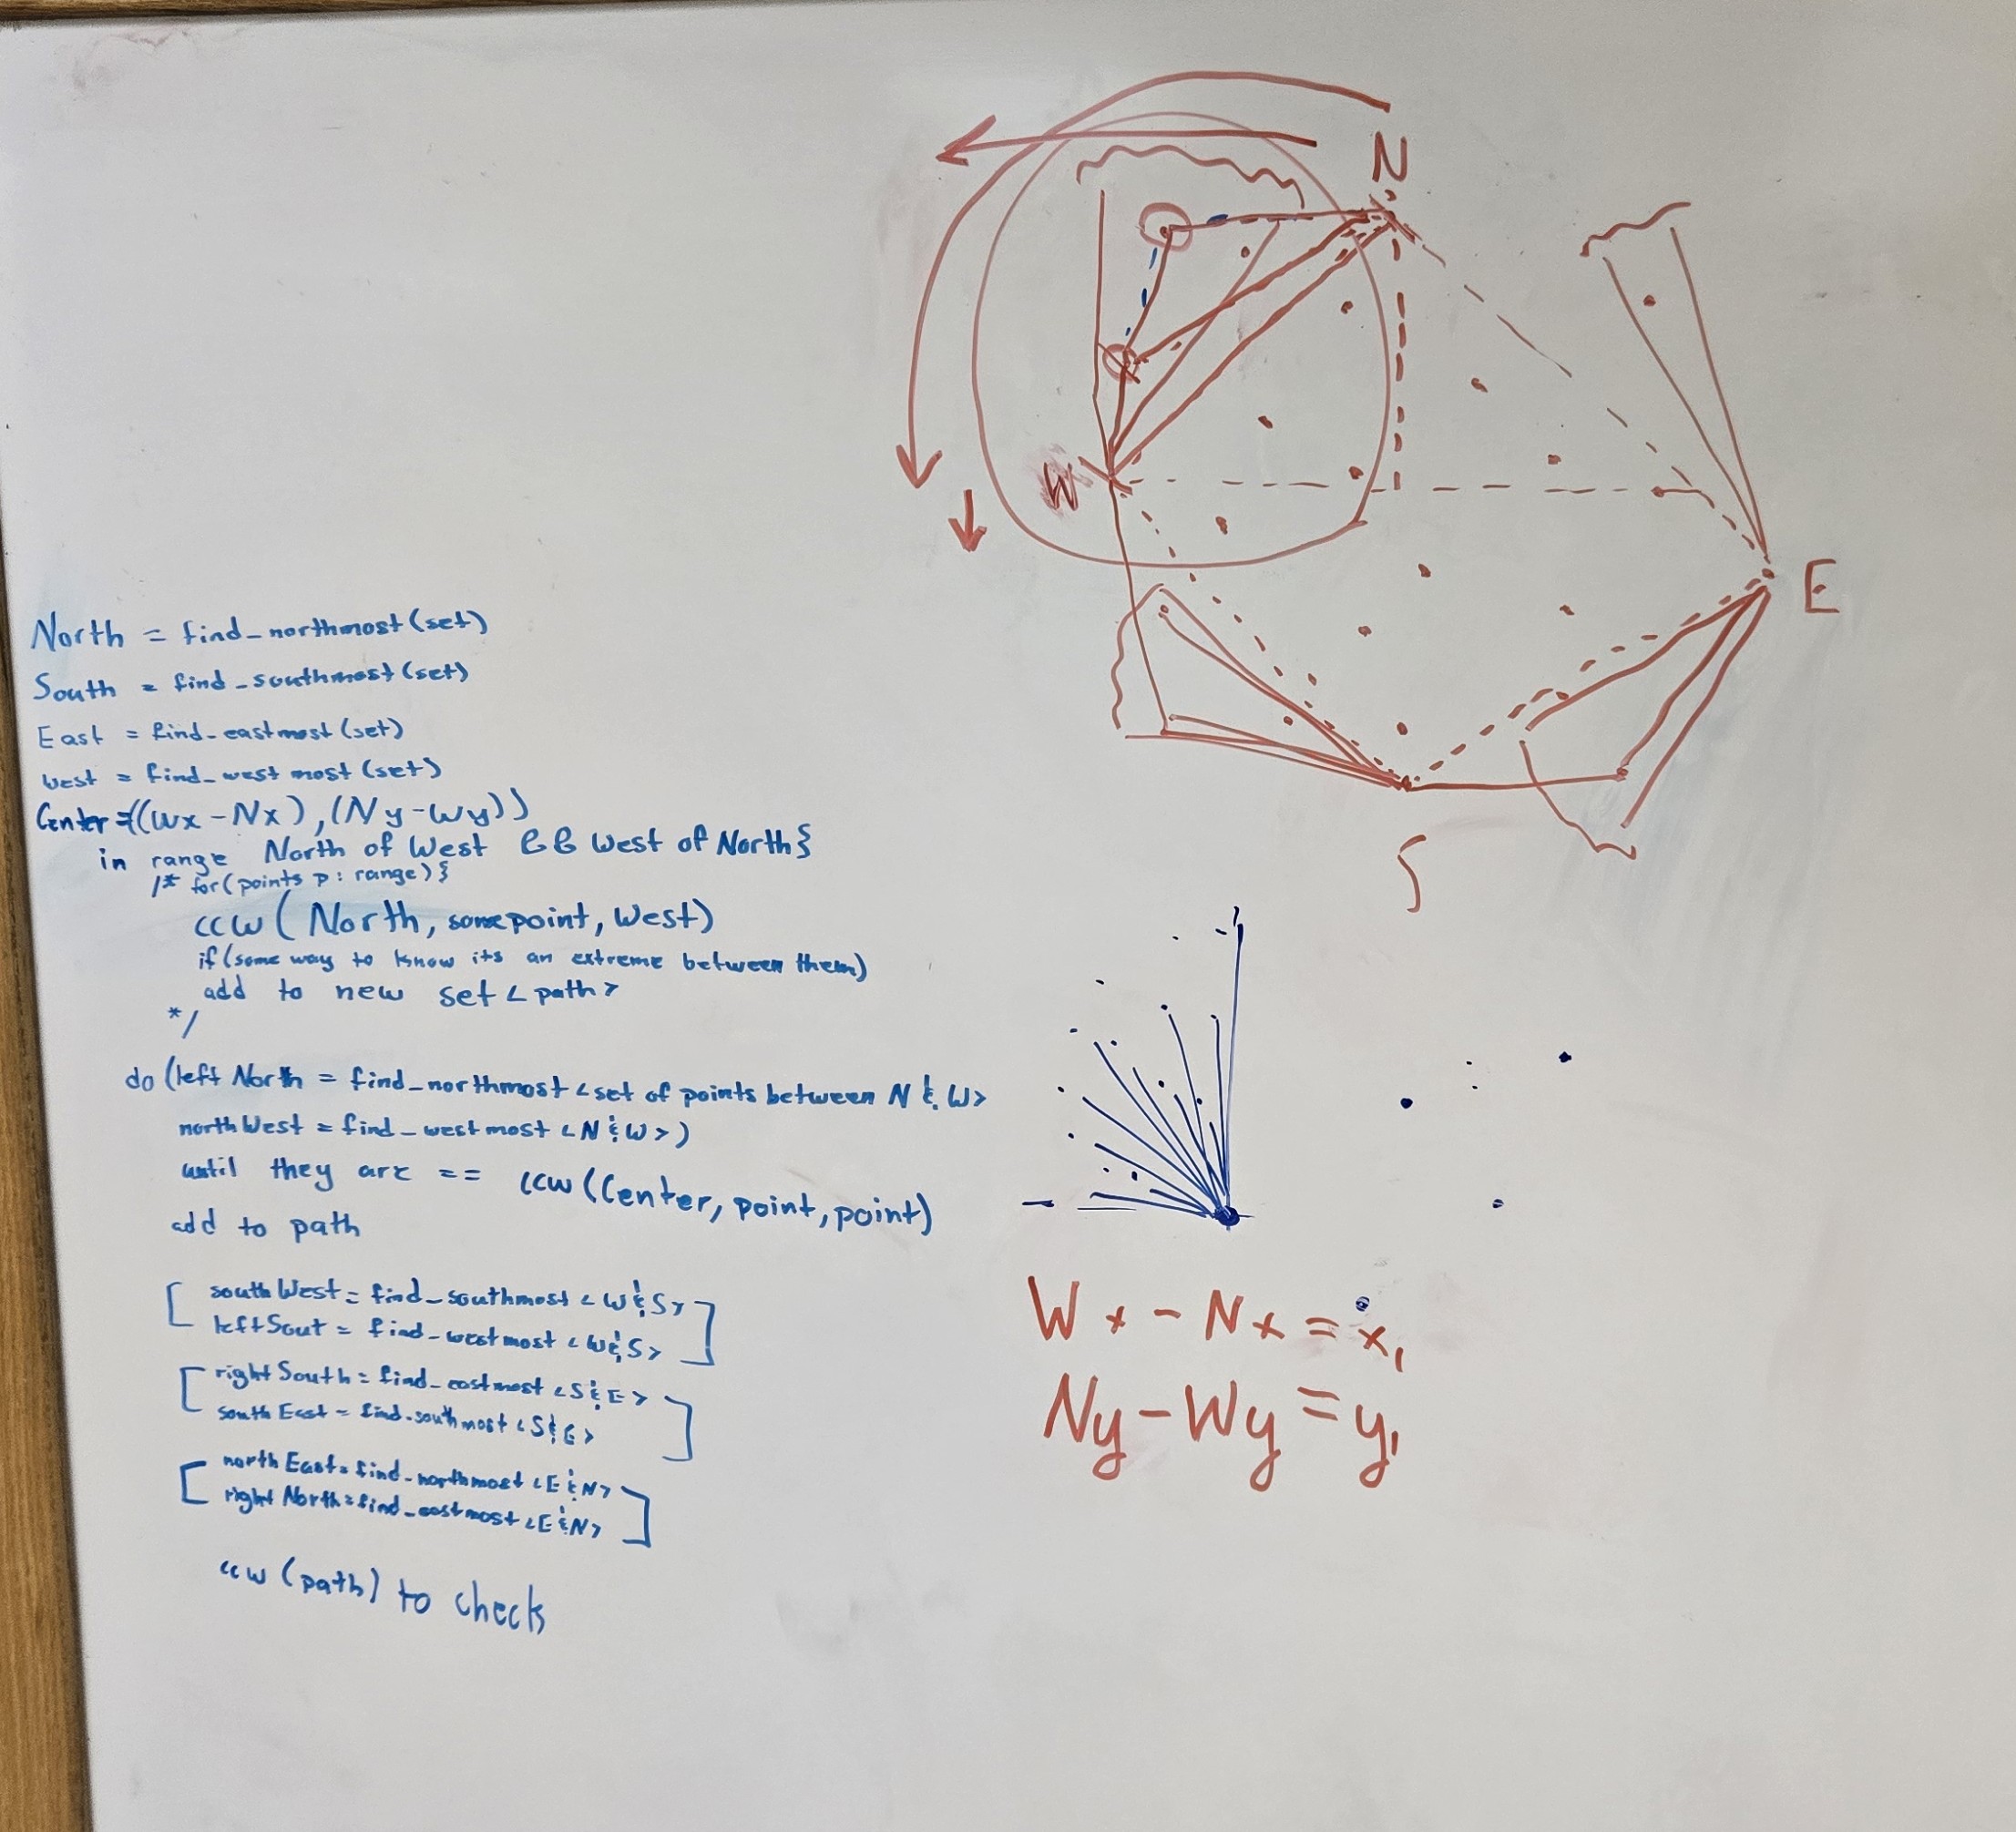 North = find_northmost(set)
South = find_southmost(set)
East = find_eastmost(set)
West = find_westmost(set)
Center=((Wx-Nx),(Ny-Wy))
in range North of West && West of North{
/* for(points p: range){
ccw(North, somepoint, West)
if(some way to know its an extreme between them)
add to new set<path>
*/
do(left North = find_northmost<set of points between N & W>
northWest = find_westmost<N & W>)
until they are == ccw(Center, point, point)
add to path
[ southWest = find_southmost<W & S> ]
leftSout = find_westmost<W & S>
[ rightSouth = find_eastmost<S & E> ]
southEast = find_southmost<S & E>
[ northEast = find_northmost<E & N> ]
right North = find_eastmost<E & N>
ccw(path) to check
N
W
E
S
Wx - Nx = x1
Ny - Wy = y1